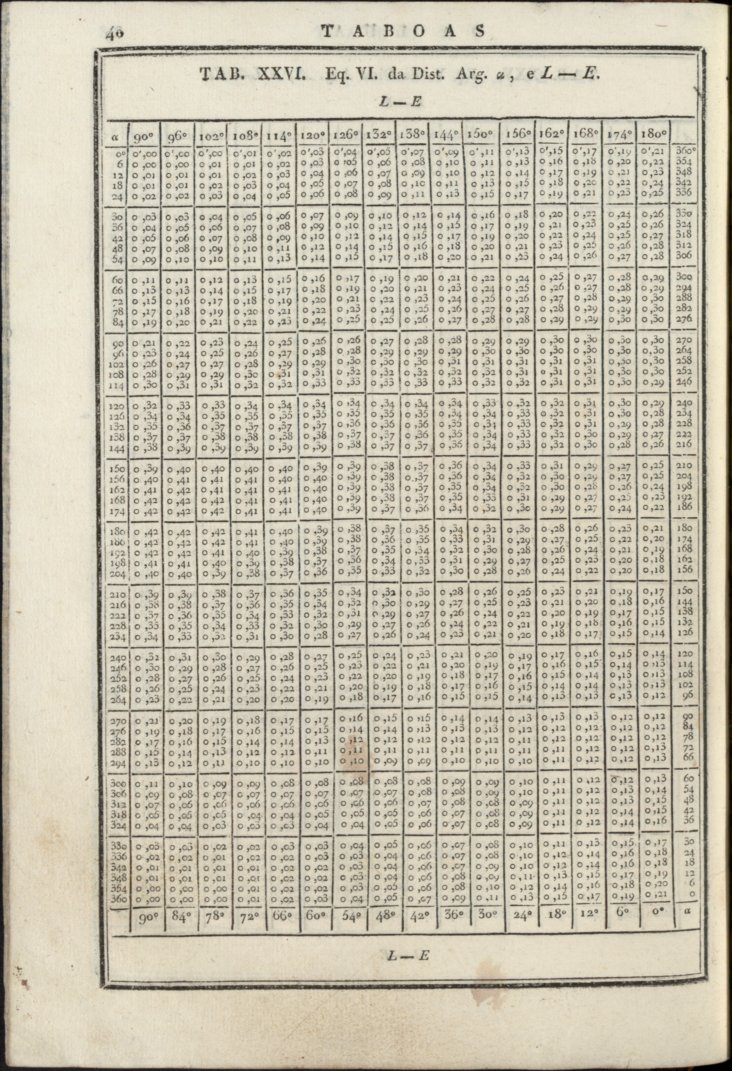 40 TABOAS
TAB. XXVI. Eq. VI. da Dist. Arg. α, e L — E.
L — E
α 90° 96° 102° 108° 114° 120° 126° 132° 138° 144° 150° 156° 162° 168° 174° 180°
0° 0',00 0',00 0',00 0',01 0',02 0',03 0',04 0',05 0',07 0',09 0',11 0',13 0',15 0',17 0',19 0',21 360°
6 0 ,00 0 ,00 0 ,01 0 ,01 0 ,02 0 ,03 0 ,05 0 ,06 0 ,08 0 ,10 0 ,11 0 ,13 0 ,16 0 ,18 0 ,20 0 ,22 354
12 0 ,01 0 ,01 0 ,01 0 ,02 0 ,03 0 ,04 0 ,06 0 ,07 0 ,09 0 ,10 0 ,12 0 ,14 0 ,17 0 ,19 0 ,21 0 ,23 348
18 0 ,01 0 ,01 0 ,02 0 ,03 0 ,04 0 ,05 0 ,07 0 ,08 0 ,10 0 ,11 0 ,13 0 ,15 0 ,18 0 ,20 0 ,22 0 ,24 342
24 0 ,02 0 ,02 0 ,03 0 ,04 0 ,05 0 ,06 0 ,08 0 ,09 0 ,11 0 ,13 0 ,15 0 ,17 0 ,19 0 ,21 0 ,23 0 ,25 336
30 0 ,03 0 ,03 0 ,04 0 ,05 0 ,06 0 ,07 0 ,09 0 ,10 0 ,12 0 ,14 0 ,16 0 ,18 0 ,20 0 ,22 0 ,24 0 ,26 330
36 0 ,04 0 ,05 0 ,06 0 ,07 0 ,08 0 ,09 0 ,10 0 ,12 0 ,14 0 ,15 0 ,17 0 ,19 0 ,21 0 ,23 0 ,25 0 ,26 324
42 0 ,05 0 ,06 0 ,07 0 ,08 0 ,09 0 ,10 0 ,12 0 ,14 0 ,15 0 ,17 0 ,19 0 ,20 0 ,22 0 ,24 0 ,25 0 ,27 318
48 0 ,07 0 ,08 0 ,09 0 ,10 0 ,11 0 ,12 0 ,14 0 ,15 0 ,16 0 ,18 0 ,20 0 ,21 0 ,23 0 ,25 0 ,26 0 ,28 312
54 0 ,09 0 ,10 0 ,10 0 ,11 0 ,13 0 ,14 0 ,15 0 ,17 0 ,18 0 ,20 0 ,21 0 ,23 0 ,24 0 ,26 0 ,27 0 ,28 306
60 0 ,11 0 ,11 0 ,12 0 ,13 0 ,15 0 ,16 0 ,17 0 ,19 0 ,20 0 ,21 0 ,22 0 ,24 0 ,25 0 ,27 0 ,28 0 ,29 300
66 0 ,13 0 ,13 0 ,14 0 ,15 0 ,17 0 ,18 0 ,19 0 ,20 0 ,21 0 ,23 0 ,24 0 ,25 0 ,26 0 ,27 0 ,28 0 ,29 294
72 0 ,15 0 ,16 0 ,17 0 ,18 0 ,19 0 ,20 0 ,21 0 ,22 0 ,23 0 ,24 0 ,25 0 ,26 0 ,27 0 ,28 0 ,29 0 ,30 288
78 0 ,17 0 ,18 0 ,19 0 ,20 0 ,21 0 ,22 0 ,23 0 ,24 0 ,25 0 ,26 0 ,27 0 ,27 0 ,28 0 ,29 0 ,29 0 ,30 282
84 0 ,19 0 ,20 0 ,21 0 ,22 0 ,23 0 ,24 0 ,25 0 ,25 0 ,26 0 ,27 0 ,28 0 ,28 0 ,29 0 ,29 0 ,30 0 ,30 276
90 0 ,21 0 ,22 0 ,23 0 ,24 0 ,25 0 ,26 0 ,26 0 ,27 0 ,28 0 ,28 0 ,29 0 ,29 0 ,30 0 ,30 0 ,30 0 ,30 270
96 0 ,23 0 ,24 0 ,25 0 ,26 0 ,27 0 ,28 0 ,28 0 ,29 0 ,29 0 ,29 0 ,30 0 ,30 0 ,30 0 ,30 0 ,30 0 ,30 264
102 0 ,26 0 ,27 0 ,27 0 ,28 0 ,29 0 ,29 0 ,30 0 ,30 0 ,30 0 ,31 0 ,31 0 ,31 0 ,31 0 ,31 0 ,30 0 ,30 258
108 0 ,28 0 ,29 0 ,29 0 ,30 0 ,31 0 ,31 0 ,32 0 ,32 0 ,32 0 ,32 0 ,32 0 ,31 0 ,31 0 ,31 0 ,30 0 ,30 252
114 0 ,30 0 ,31 0 ,31 0 ,32 0 ,32 0 ,33 0 ,33 0 ,33 0 ,33 0 ,33 0 ,32 0 ,32 0 ,31 0 ,31 0 ,30 0 ,29 246
120 0 ,32 0 ,33 0 ,33 0 ,34 0 ,34 0 ,34 0 ,34 0 ,34 0 ,34 0 ,34 0 ,33 0 ,32 0 ,32 0 ,31 0 ,30 0 ,29 240
126 0 ,34 0 ,34 0 ,35 0 ,35 0 ,35 0 ,35 0 ,35 0 ,35 0 ,35 0 ,34 0 ,34 0 ,33 0 ,32 0 ,31 0 ,30 0 ,28 234
132 0 ,35 0 ,36 0 ,37 0 ,37 0 ,37 0 ,37 0 ,36 0 ,36 0 ,36 0 ,35 0 ,34 0 ,33 0 ,32 0 ,31 0 ,29 0 ,28 228
138 0 ,37 0 ,37 0 ,38 0 ,38 0 ,38 0 ,38 0 ,37 0 ,37 0 ,36 0 ,35 0 ,34 0 ,33 0 ,32 0 ,30 0 ,29 0 ,27 222
144 0 ,38 0 ,39 0 ,39 0 ,39 0 ,39 0 ,39 0 ,38 0 ,37 0 ,37 0 ,36 0 ,34 0 ,33 0 ,32 0 ,30 0 ,28 0 ,26 216
150 0 ,39 0 ,40 0 ,40 0 ,40 0 ,40 0 ,39 0 ,39 0 ,38 0 ,37 0 ,36 0 ,34 0 ,33 0 ,31 0 ,29 0 ,27 0 ,25 210
156 0 ,40 0 ,41 0 ,41 0 ,41 0 ,40 0 ,40 0 ,39 0 ,38 0 ,37 0 ,36 0 ,34 0 ,32 0 ,30 0 ,29 0 ,27 0 ,25 204
162 0 ,41 0 ,42 0 ,42 0 ,41 0 ,41 0 ,40 0 ,39 0 ,38 0 ,37 0 ,35 0 ,34 0 ,32 0 ,30 0 ,28 0 ,26 0 ,24 198
168 0 ,42 0 ,42 0 ,42 0 ,41 0 ,41 0 ,40 0 ,39 0 ,38 0 ,37 0 ,35 0 ,33 0 ,31 0 ,29 0 ,27 0 ,25 0 ,23 192
174 0 ,42 0 ,42 0 ,42 0 ,41 0 ,41 0 ,40 0 ,39 0 ,37 0 ,36 0 ,34 0 ,32 0 ,30 0 ,29 0 ,27 0 ,24 0 ,22 186
180 0 ,42 0 ,42 0 ,42 0 ,41 0 ,40 0 ,39 0 ,38 0 ,37 0 ,35 0 ,34 0 ,32 0 ,30 0 ,28 0 ,26 0 ,23 0 ,21 180
186 0 ,42 0 ,42 0 ,42 0 ,41 0 ,40 0 ,39 0 ,38 0 ,36 0 ,35 0 ,33 0 ,31 0 ,29 0 ,27 0 ,25 0 ,22 0 ,20 174
192 0 ,42 0 ,42 0 ,41 0 ,40 0 ,39 0 ,38 0 ,37 0 ,35 0 ,34 0 ,32 0 ,30 0 ,28 0 ,26 0 ,24 0 ,21 0 ,19 168
198 0 ,41 0 ,41 0 ,40 0 ,39 0 ,38 0 ,37 0 ,36 0 ,34 0 ,33 0 ,31 0 ,29 0 ,27 0 ,25 0 ,23 0 ,20 0 ,18 162
204 0 ,40 0 ,40 0 ,39 0 ,38 0 ,37 0 ,36 0 ,35 0 ,33 0 ,32 0 ,30 0 ,28 0 ,26 0 ,24 0 ,22 0 ,20 0 ,18 156
210 0 ,39 0 ,39 0 ,38 0 ,37 0 ,36 0 ,35 0 ,34 0 ,32 0 ,30 0 ,28 0 ,26 0 ,25 0 ,23 0 ,21 0 ,19 0 ,17 150
216 0 ,38 0 ,38 0 ,37 0 ,36 0 ,35 0 ,34 0 ,32 0 ,30 0 ,29 0 ,27 0 ,25 0 ,23 0 ,21 0 ,20 0 ,18 0 ,16 144
222 0 ,37 0 ,36 0 ,35 0 ,34 0 ,33 0 ,32 0 ,31 0 ,29 0 ,27 0 ,26 0 ,24 0 ,22 0 ,20 0 ,19 0 ,17 0 ,15 138
228 0 ,35 0 ,35 0 ,34 0 ,33 0 ,32 0 ,30 0 ,29 0 ,27 0 ,26 0 ,24 0 ,22 0 ,21 0 ,19 0 ,18 0 ,16 0 ,15 132
234 0 ,34 0 ,33 0 ,32 0 ,31 0 ,30 0 ,28 0 ,27 0 ,26 0 ,24 0 ,23 0 ,21 0 ,20 0 ,18 0 ,17 0 ,15 0 ,14 126
240 0 ,32 0 ,31 0 ,30 0 ,29 0 ,28 0 ,27 0 ,25 0 ,24 0 ,23 0 ,21 0 ,20 0 ,19 0 ,17 0 ,16 0 ,15 0 ,14 120
246 0 ,30 0 ,29 0 ,28 0 ,27 0 ,26 0 ,25 0 ,23 0 ,22 0 ,21 0 ,20 0 ,19 0 ,17 0 ,16 0 ,15 0 ,14 0 ,13 114
252 0 ,28 0 ,27 0 ,26 0 ,25 0 ,24 0 ,23 0 ,22 0 ,20 0 ,19 0 ,18 0 ,17 0 ,16 0 ,15 0 ,14 0 ,13 0 ,13 108
258 0 ,26 0 ,25 0 ,24 0 ,23 0 ,22 0 ,21 0 ,20 0 ,19 0 ,18 0 ,17 0 ,16 0 ,15 0 ,14 0 ,14 0 ,13 0 ,13 102
264 0 ,23 0 ,22 0 ,21 0 ,20 0 ,20 0 ,19 0 ,18 0 ,17 0 ,16 0 ,15 0 ,15 0 ,14 0 ,13 0 ,13 0 ,13 0 ,12 96
270 0 ,21 0 ,20 0 ,19 0 ,18 0 ,17 0 ,17 0 ,16 0 ,15 0 ,15 0 ,14 0 ,14 0 ,13 0 ,13 0 ,13 0 ,12 0 ,12 90
276 0 ,19 0 ,18 0 ,17 0 ,16 0 ,15 0 ,15 0 ,14 0 ,14 0 ,13 0 ,13 0 ,13 0 ,12 0 ,12 0 ,12 0 ,12 0 ,12 84
282 0 ,17 0 ,16 0 ,15 0 ,14 0 ,14 0 ,13 0 ,12 0 ,12 0 ,12 0 ,12 0 ,12 0 ,11 0 ,12 0 ,12 0 ,12 0 ,12 78
288 0 ,15 0 ,14 0 ,13 0 ,12 0 ,12 0 ,11 0 ,11 0 ,11 0 ,11 0 ,11 0 ,11 0 ,11 0 ,11 0 ,12 0 ,12 0 ,13 72
294 0 ,13 0 ,12 0 ,11 0 ,10 0 ,10 0 ,10 0 ,10 0 ,09 0 ,09 0 ,10 0 ,10 0 ,10 0 ,11 0 ,12 0 ,12 0 ,13 66
300 0 ,11 0 ,10 0 ,09 0 ,09 0 ,08 0 ,08 0 ,08 0 ,08 0 ,08 0 ,09 0 ,09 0 ,10 0 ,11 0 ,12 0 ,12 0 ,13 60
306 0 ,09 0 ,08 0 ,07 0 ,07 0 ,07 0 ,07 0 ,07 0 ,07 0 ,08 0 ,08 0 ,09 0 ,10 0 ,11 0 ,12 0 ,13 0 ,14 54
312 0 ,07 0 ,06 0 ,06 0 ,06 0 ,06 0 ,06 0 ,06 0 ,06 0 ,07 0 ,08 0 ,08 0 ,09 0 ,11 0 ,12 0 ,13 0 ,15 48
318 0 ,05 0 ,05 0 ,05 0 ,04 0 ,04 0 ,05 0 ,05 0 ,06 0 ,06 0 ,07 0 ,08 0 ,09 0 ,11 0 ,12 0 ,14 0 ,15 42
324 0 ,04 0 ,04 0 ,03 0 ,03 0 ,03 0 ,04 0 ,04 0 ,05 0 ,06 0 ,07 0 ,08 0 ,09 0 ,11 0 ,12 0 ,14 0 ,16 36
330 0 ,03 0 ,03 0 ,02 0 ,02 0 ,03 0 ,03 0 ,04 0 ,05 0 ,06 0 ,07 0 ,08 0 ,10 0 ,11 0 ,13 0 ,15 0 ,17 30
336 0 ,02 0 ,02 0 ,01 0 ,02 0 ,02 0 ,03 0 ,03 0 ,04 0 ,06 0 ,07 0 ,08 0 ,10 0 ,12 0 ,14 0 ,16 0 ,18 24
342 0 ,01 0 ,01 0 ,01 0 ,01 0 ,02 0 ,02 0 ,03 0 ,04 0 ,06 0 ,07 0 ,09 0 ,10 0 ,12 0 ,14 0 ,16 0 ,18 18
348 0 ,01 0 ,01 0 ,01 0 ,01 0 ,02 0 ,02 0 ,03 0 ,04 0 ,06 0 ,08 0 ,09 0 ,11 0 ,13 0 ,15 0 ,17 0 ,19 12
354 0 ,00 0 ,00 0 ,00 0 ,01 0 ,02 0 ,02 0 ,03 0 ,05 0 ,06 0 ,08 0 ,10 0 ,12 0 ,14 0 ,16 0 ,18 0 ,20 6
360 0 ,00 0 ,00 0 ,00 0 ,01 0 ,02 0 ,03 0 ,04 0 ,05 0 ,07 0 ,09 0 ,11 0 ,13 0 ,15 0 ,17 0 ,19 0 ,21 0
90° 84° 78° 72° 66° 60° 54° 48° 42° 36° 30° 24° 18° 12° 6° 0° α
L — E